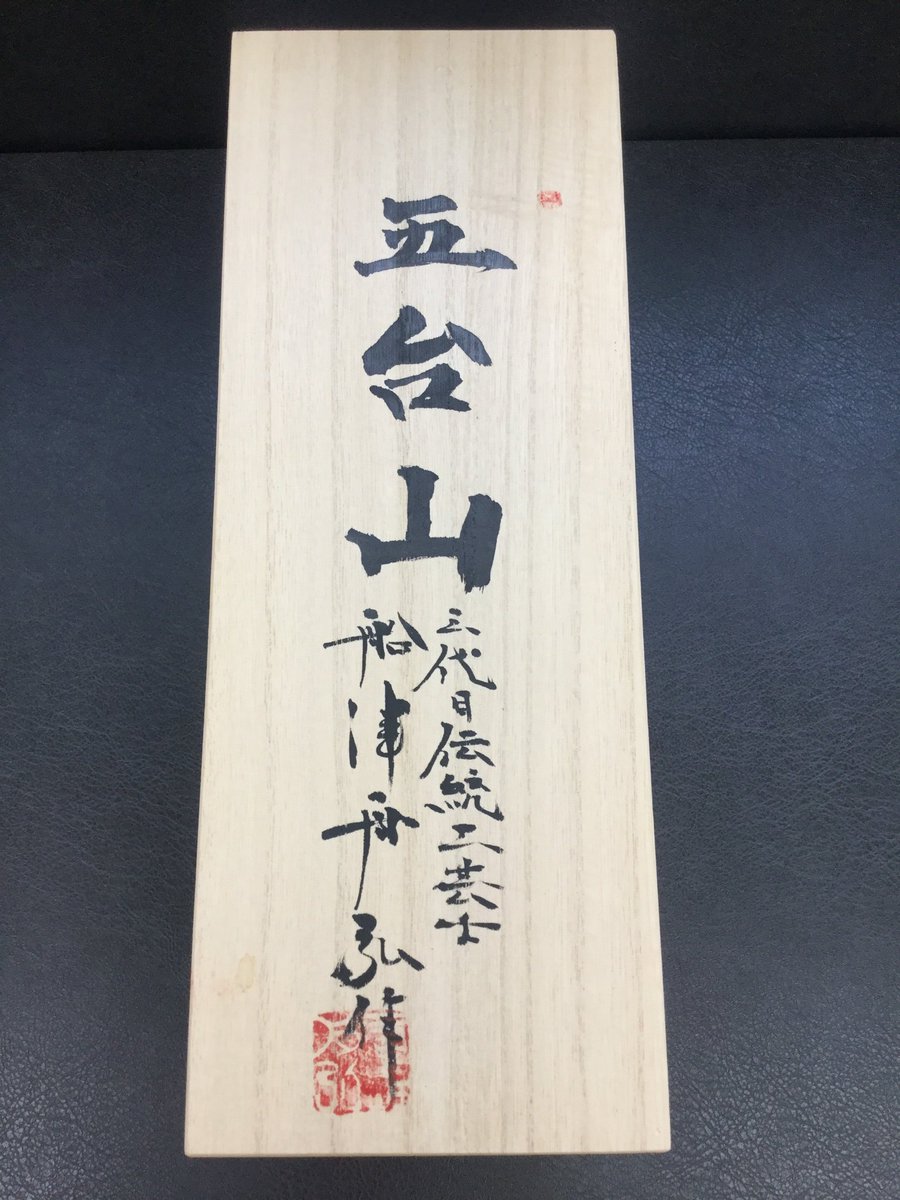 五台山
三代目伝統工芸士
船津舟弘作